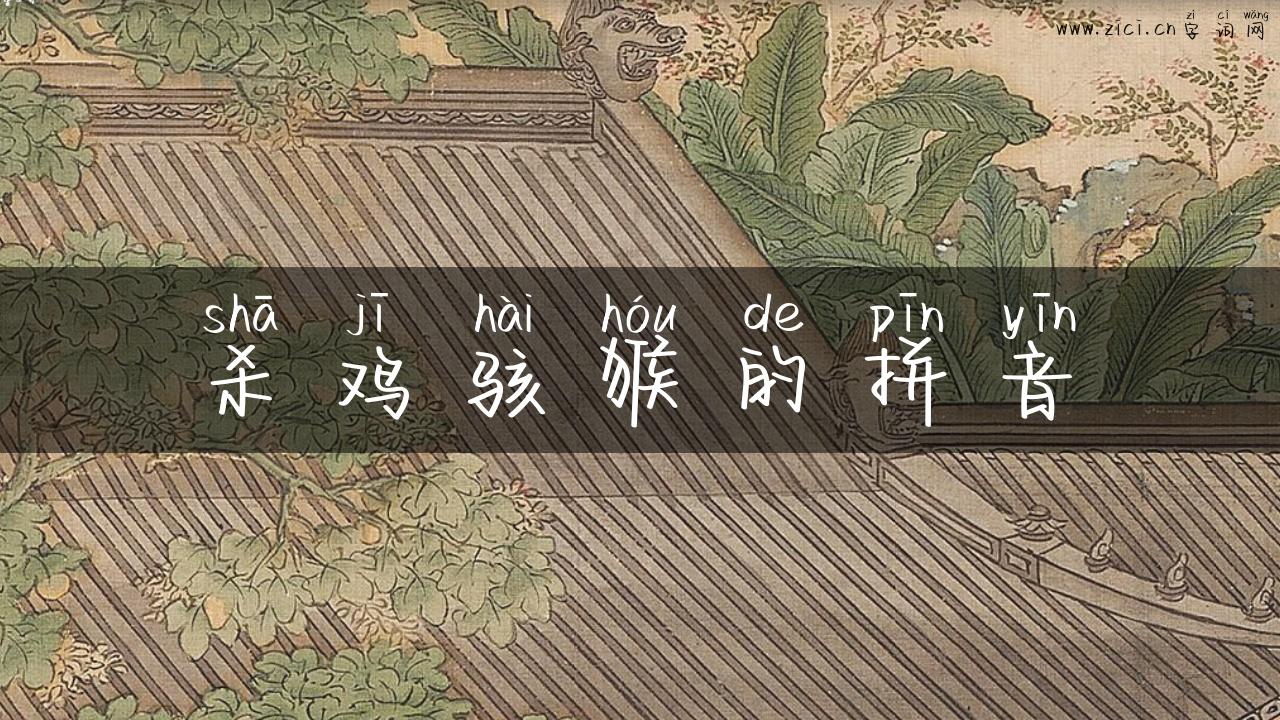 zì cí wǎng
www.zici.cn 字词网
shā jī hài hóu de pīn yīn
杀鸡骇猴的拼音